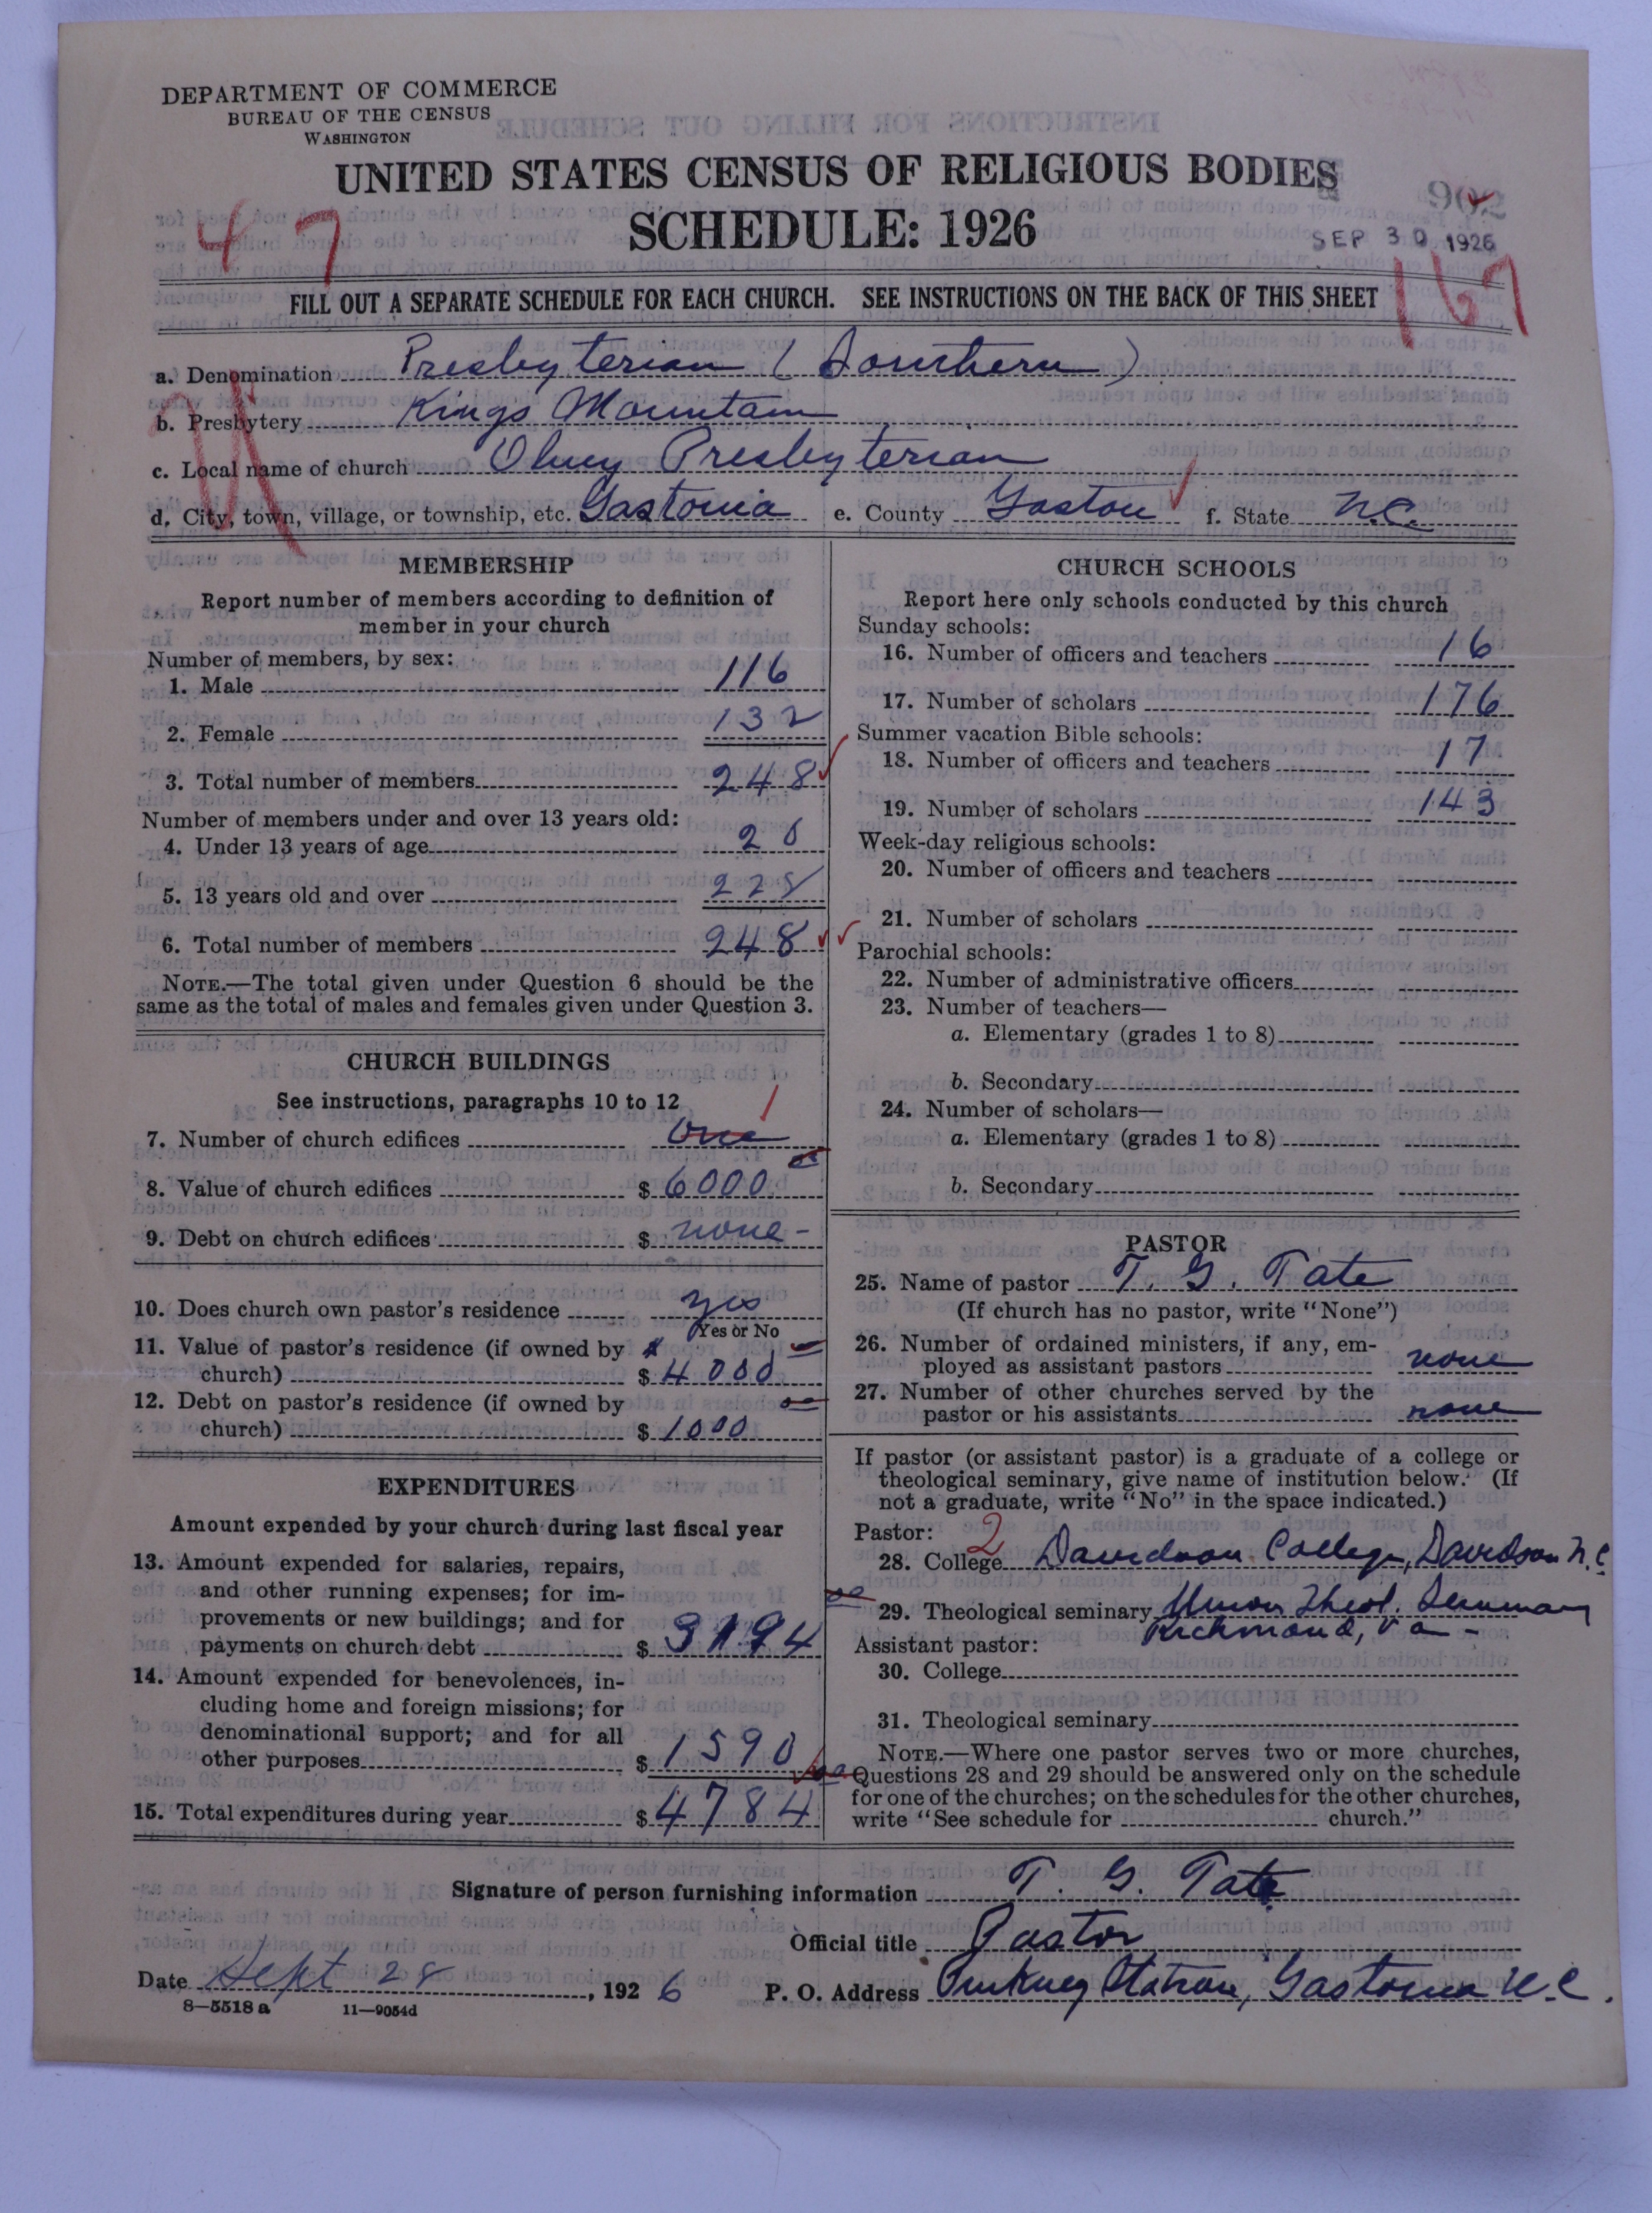 DEPARTMENT OF COMMERCE
BUREAU OF THE CENSUS
WASHINGTON
UNITED STATES CENSUS OF RELIGIOUS BODIES
SCHEDULE: 1926
902
SEP 30 1926
4 7
167
FILL OUT A SEPARATE SCHEDULE FOR EACH CHURCH. SEE INSTRUCTIONS ON THE BACK OF THIS SHEET
a. Denomination Presbyterian (Southern)
b. Presbytery Kings Mountain
c. Local name of church Olney Presbyterian
d. City, town, village, or township, etc. Gastonia e. County Gaston f. State N.C.
MEMBERSHIP
Report number of members according to definition of
member in your church
Number of members, by sex:
1. Male 116
2. Female 132
3. Total number of members 248
Number of members under and over 13 years old:
4. Under 13 years of age 20
5. 13 years old and over 228
6. Total number of members 248
NOTE.—The total given under Question 6 should be the
same as the total of males and females given under Question 3.
CHURCH BUILDINGS
See instructions, paragraphs 10 to 12
7. Number of church edifices one 1
8. Value of church edifices $ 6000
9. Debt on church edifices $ none -
10. Does church own pastor's residence yes
Yes or No
11. Value of pastor's residence (if owned by
church) $ 4000
12. Debt on pastor's residence (if owned by
church) $ 1000
EXPENDITURES
Amount expended by your church during last fiscal year
13. Amount expended for salaries, repairs,
and other running expenses; for im-
provements or new buildings; and for
payments on church debt $ 3194
14. Amount expended for benevolences, in-
cluding home and foreign missions; for
denominational support; and for all
other purposes $ 1590
15. Total expenditures during year $ 4784
CHURCH SCHOOLS
Report here only schools conducted by this church
Sunday schools:
16. Number of officers and teachers 16
17. Number of scholars 176
Summer vacation Bible schools:
18. Number of officers and teachers 17
19. Number of scholars 143
Week-day religious schools:
20. Number of officers and teachers
21. Number of scholars
Parochial schools:
22. Number of administrative officers
23. Number of teachers—
a. Elementary (grades 1 to 8)
b. Secondary
24. Number of scholars—
a. Elementary (grades 1 to 8)
b. Secondary
PASTOR
25. Name of pastor T. G. Tate
(If church has no pastor, write "None")
26. Number of ordained ministers, if any, em-
ployed as assistant pastors none
27. Number of other churches served by the
pastor or his assistants none
If pastor (or assistant pastor) is a graduate of a college or
theological seminary, give name of institution below. (If
not a graduate, write "No" in the space indicated.)
Pastor: 2
28. College Davidson College, Davidson N.C
29. Theological seminary Union Theol. Seminary
Richmond, Va -
Assistant pastor:
30. College
31. Theological seminary
NOTE.—Where one pastor serves two or more churches,
Questions 28 and 29 should be answered only on the schedule
for one of the churches; on the schedules for the other churches,
write "See schedule for church."
Signature of person furnishing information T. G. Tate
Official title Pastor
Date Sept 28, 1926 P. O. Address Pinkney Station, Gastonia N.C.
8—5518 a 11—9054d